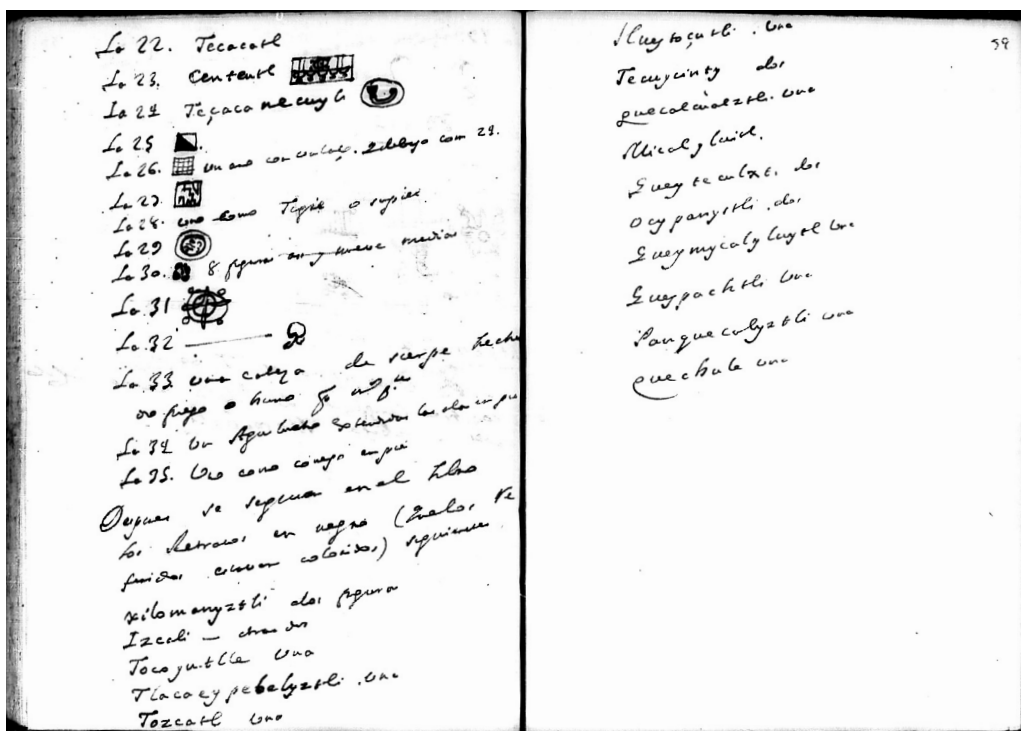 La 22. Tecacatl
La 23. Centeutl
La 24 Teçacanecuyli
La 25
La 26. un ano con dibujo com 24.
La 27.
La 28. uno como Tigre o
La 29
La 30. 8 figuras y nueve medias
La 31
La 32
La 33 una cabeza de sierpe hecha
fuego o humo
La 34 Un Aguilucho las alas en pie
La 35. Uno como conejo en pie
Despues se seguian en el Libro
los Retratos en negro (quelos re
feridos estavan coloridos) siguientes
xilomanyztli dos figuras
Izcali — otras dos
Tocoyutlle una
Tlacaeypebalyztli . una
Tozcatl una
59
Hueytoçutli . una
Tecuycinty dos
quecalcualztli una
Micalyluitl.
Gueytecultzt. dos
Ocypanystli . dos
Gueymycalyluytl una
Gueypachtli una
Panquecalyztli una
quechule una